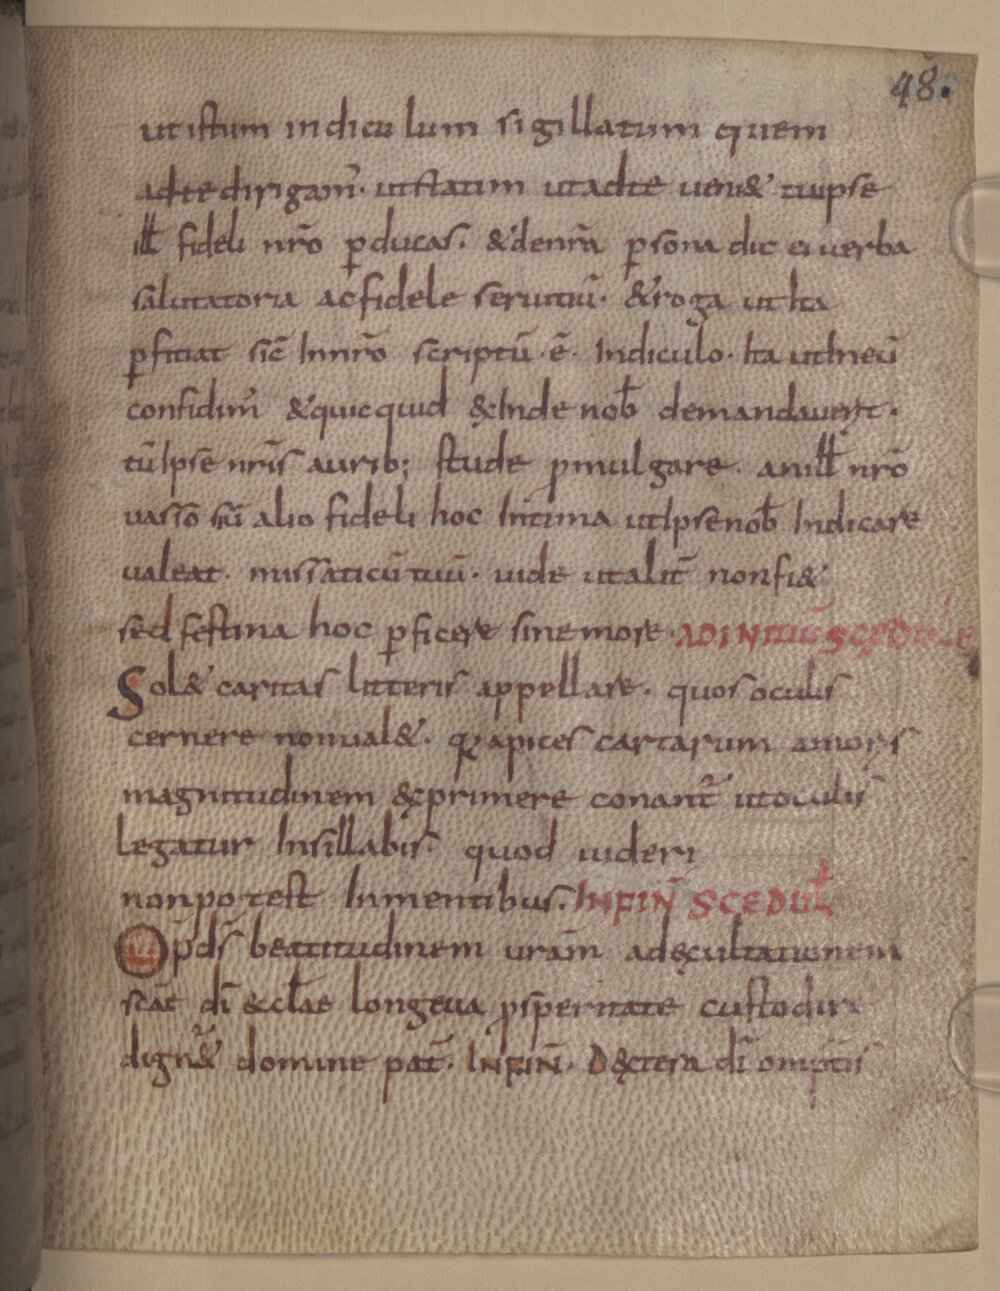 48.
ut istum indiculum sigillatum quem
ad te dirigam̄. ut statim ut ad te ueni& tu ipsē
ill̄ fideli nr̄o p̄ducas. & de nr̄a p̄sona dic ei uerba
salutatoria ac fidele seruitiū. & roga ut ita
p̄ficiat sic̄ In nr̄o scriptū. ē. Indiculo. Ita ut In eū
confidim̄ & quicquid &̨Inde nob̄ demandauer̄t.
tū Ipse nr̄is aurib; stude p̄mulgare. an ill̄ nr̄o
uasso siū alio fideli hoc Intima ut Ipse nob̄ Indicare
ualeat. missaticū tuū. uide ut alit̄ non fi&
sed festina hoc p̄ficere sine more. AD INITIUM SCEDULE
Sol& caritas litteris appellare. quos oculis
cernere non ual&. q̄ apices cartarum amoris
magnitudinem &̨primere conant̄ ut oculis
legatur In sillabis. quod uideri
non potest In mentibus. IN FIN̄ SCEDUL̄
Op̄ds̄ beatitudinem uram̄ ad &̨cultationem
scāe dī &cl̄ae longeua p̄speritate custodire
dign̄& domine pat̄. IN FIN̄. D&̨tera dī omp̄tis